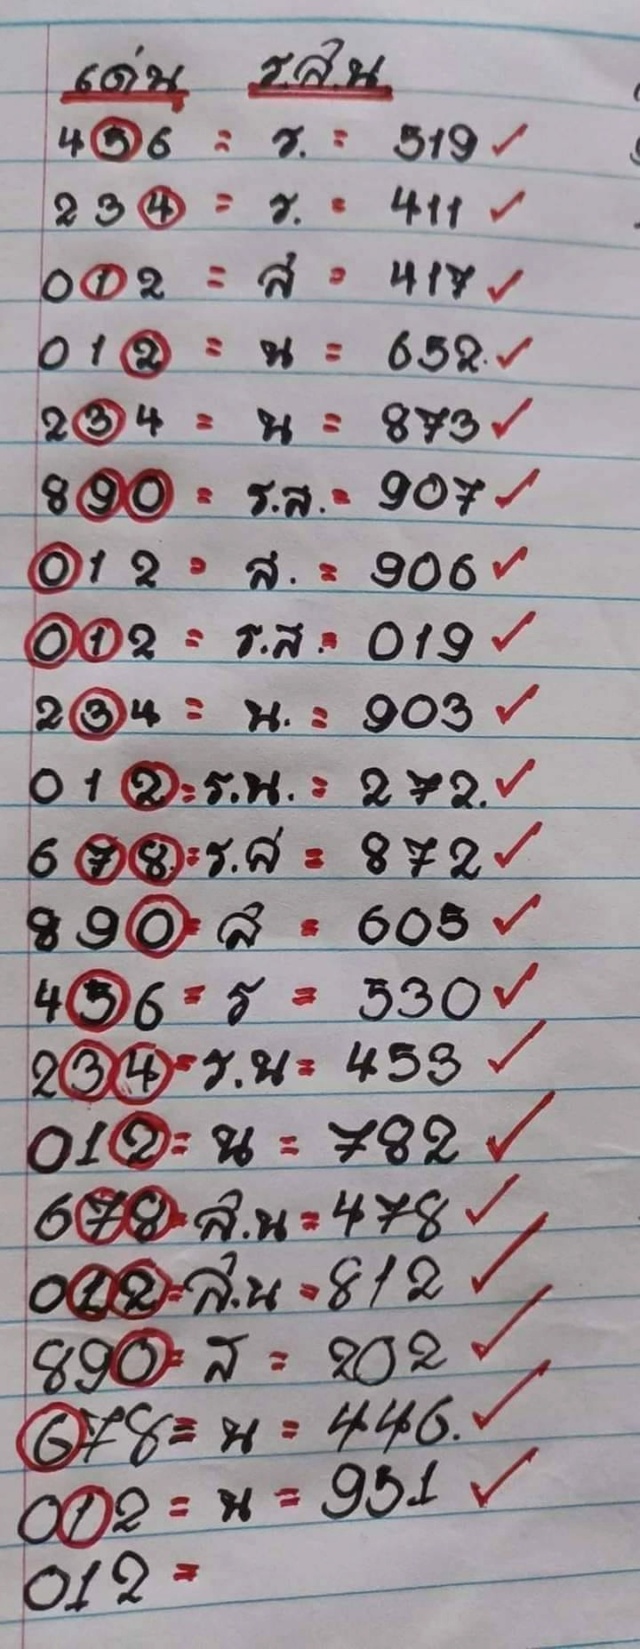 เด่น ร.ส.น
456 = ร. = 519 ✓
234 = ร. = 411 ✓
012 = ส = 417 ✓
012 = น = 652. ✓
234 = น = 873 ✓
890 = ร.ส. = 907 ✓
012 = ส. = 906 ✓
012 = ร.ส. = 019 ✓
234 = น. = 903 ✓
012 = ร.น. = 272. ✓
678 = ร.ส = 872 ✓
890 = ส = 605 ✓
456 = ร = 530 ✓
234 = ร.น = 453 ✓
012 = น = 782 ✓
678 = ส.น = 478 ✓
012 = ส.น = 812 ✓
890 = ส = 202 ✓
678 = น = 446. ✓
012 = น = 951 ✓
012 =